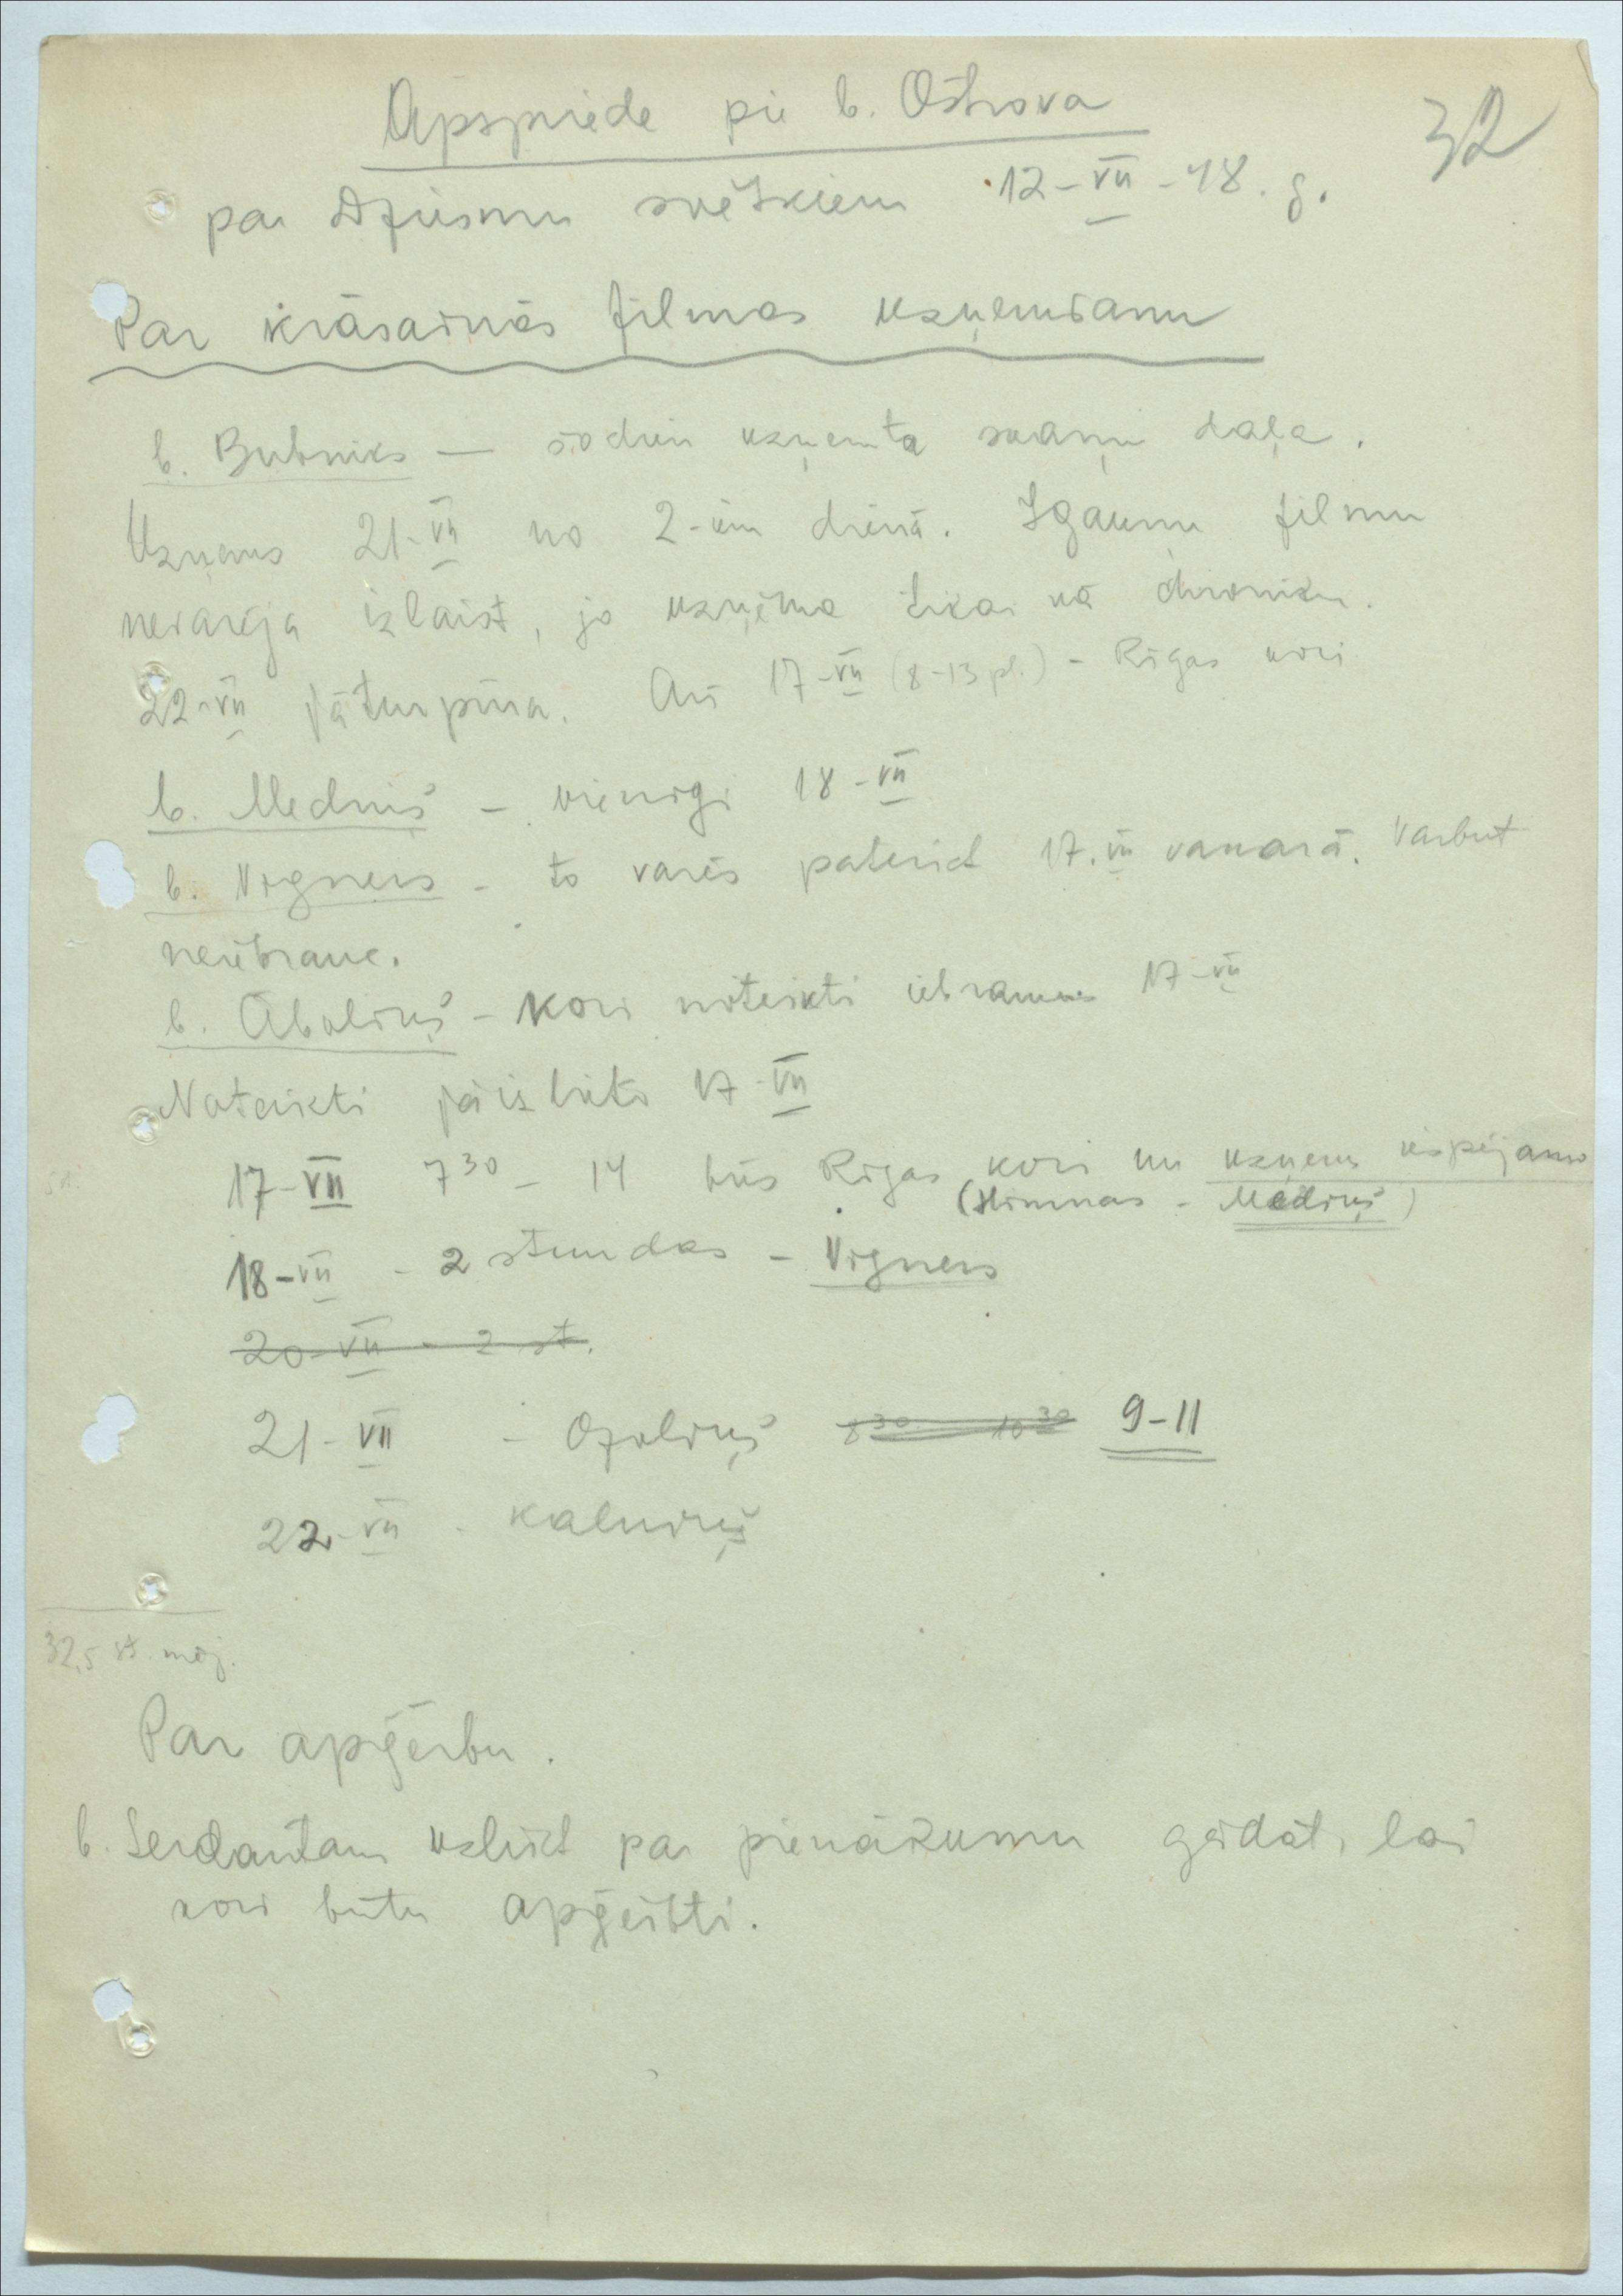 Apspriede pie b. Ostrova
32
par Dziesmu svētkiem 12-VII-48. g.
Par krāsainās filmas uzņemšanu
b. Bubniks — šodien uzņemta skaņu daļa.
Uzņems 21-VII no 2-iem dienā. Igauņu filmu
nevarēja izlaist, jo uzņēma tikai kā chroniku.
22-VII jāturpina. Arī 17-VII (8-13 pl.) - Rīgas kori
b. Mediņš - vienīgi 18-VII
b. Vigners - to varēs pateikt 17.VII vakarā. Varbut
neiebrauc.
b. Āboliņš - Kori noteikti iebrauks 17-VII
Noteikti jāizbūto 17-VII
17-VII 7³⁰ - 14 būs Rīgas kori un uzņems iespējamo
(Himnas - Mediņš)
18-VII - 2 stundas - Vigners
20-VII - 2 st.
21-VII - Ozoliņš 8³⁰ 10³⁰ 9-11
22-VII - Kalniņš
32,5 st. mēģ.
Par apģērbu.
b. uzlikt par pienākumu gādāt, lai
kori būtu apģērbti.